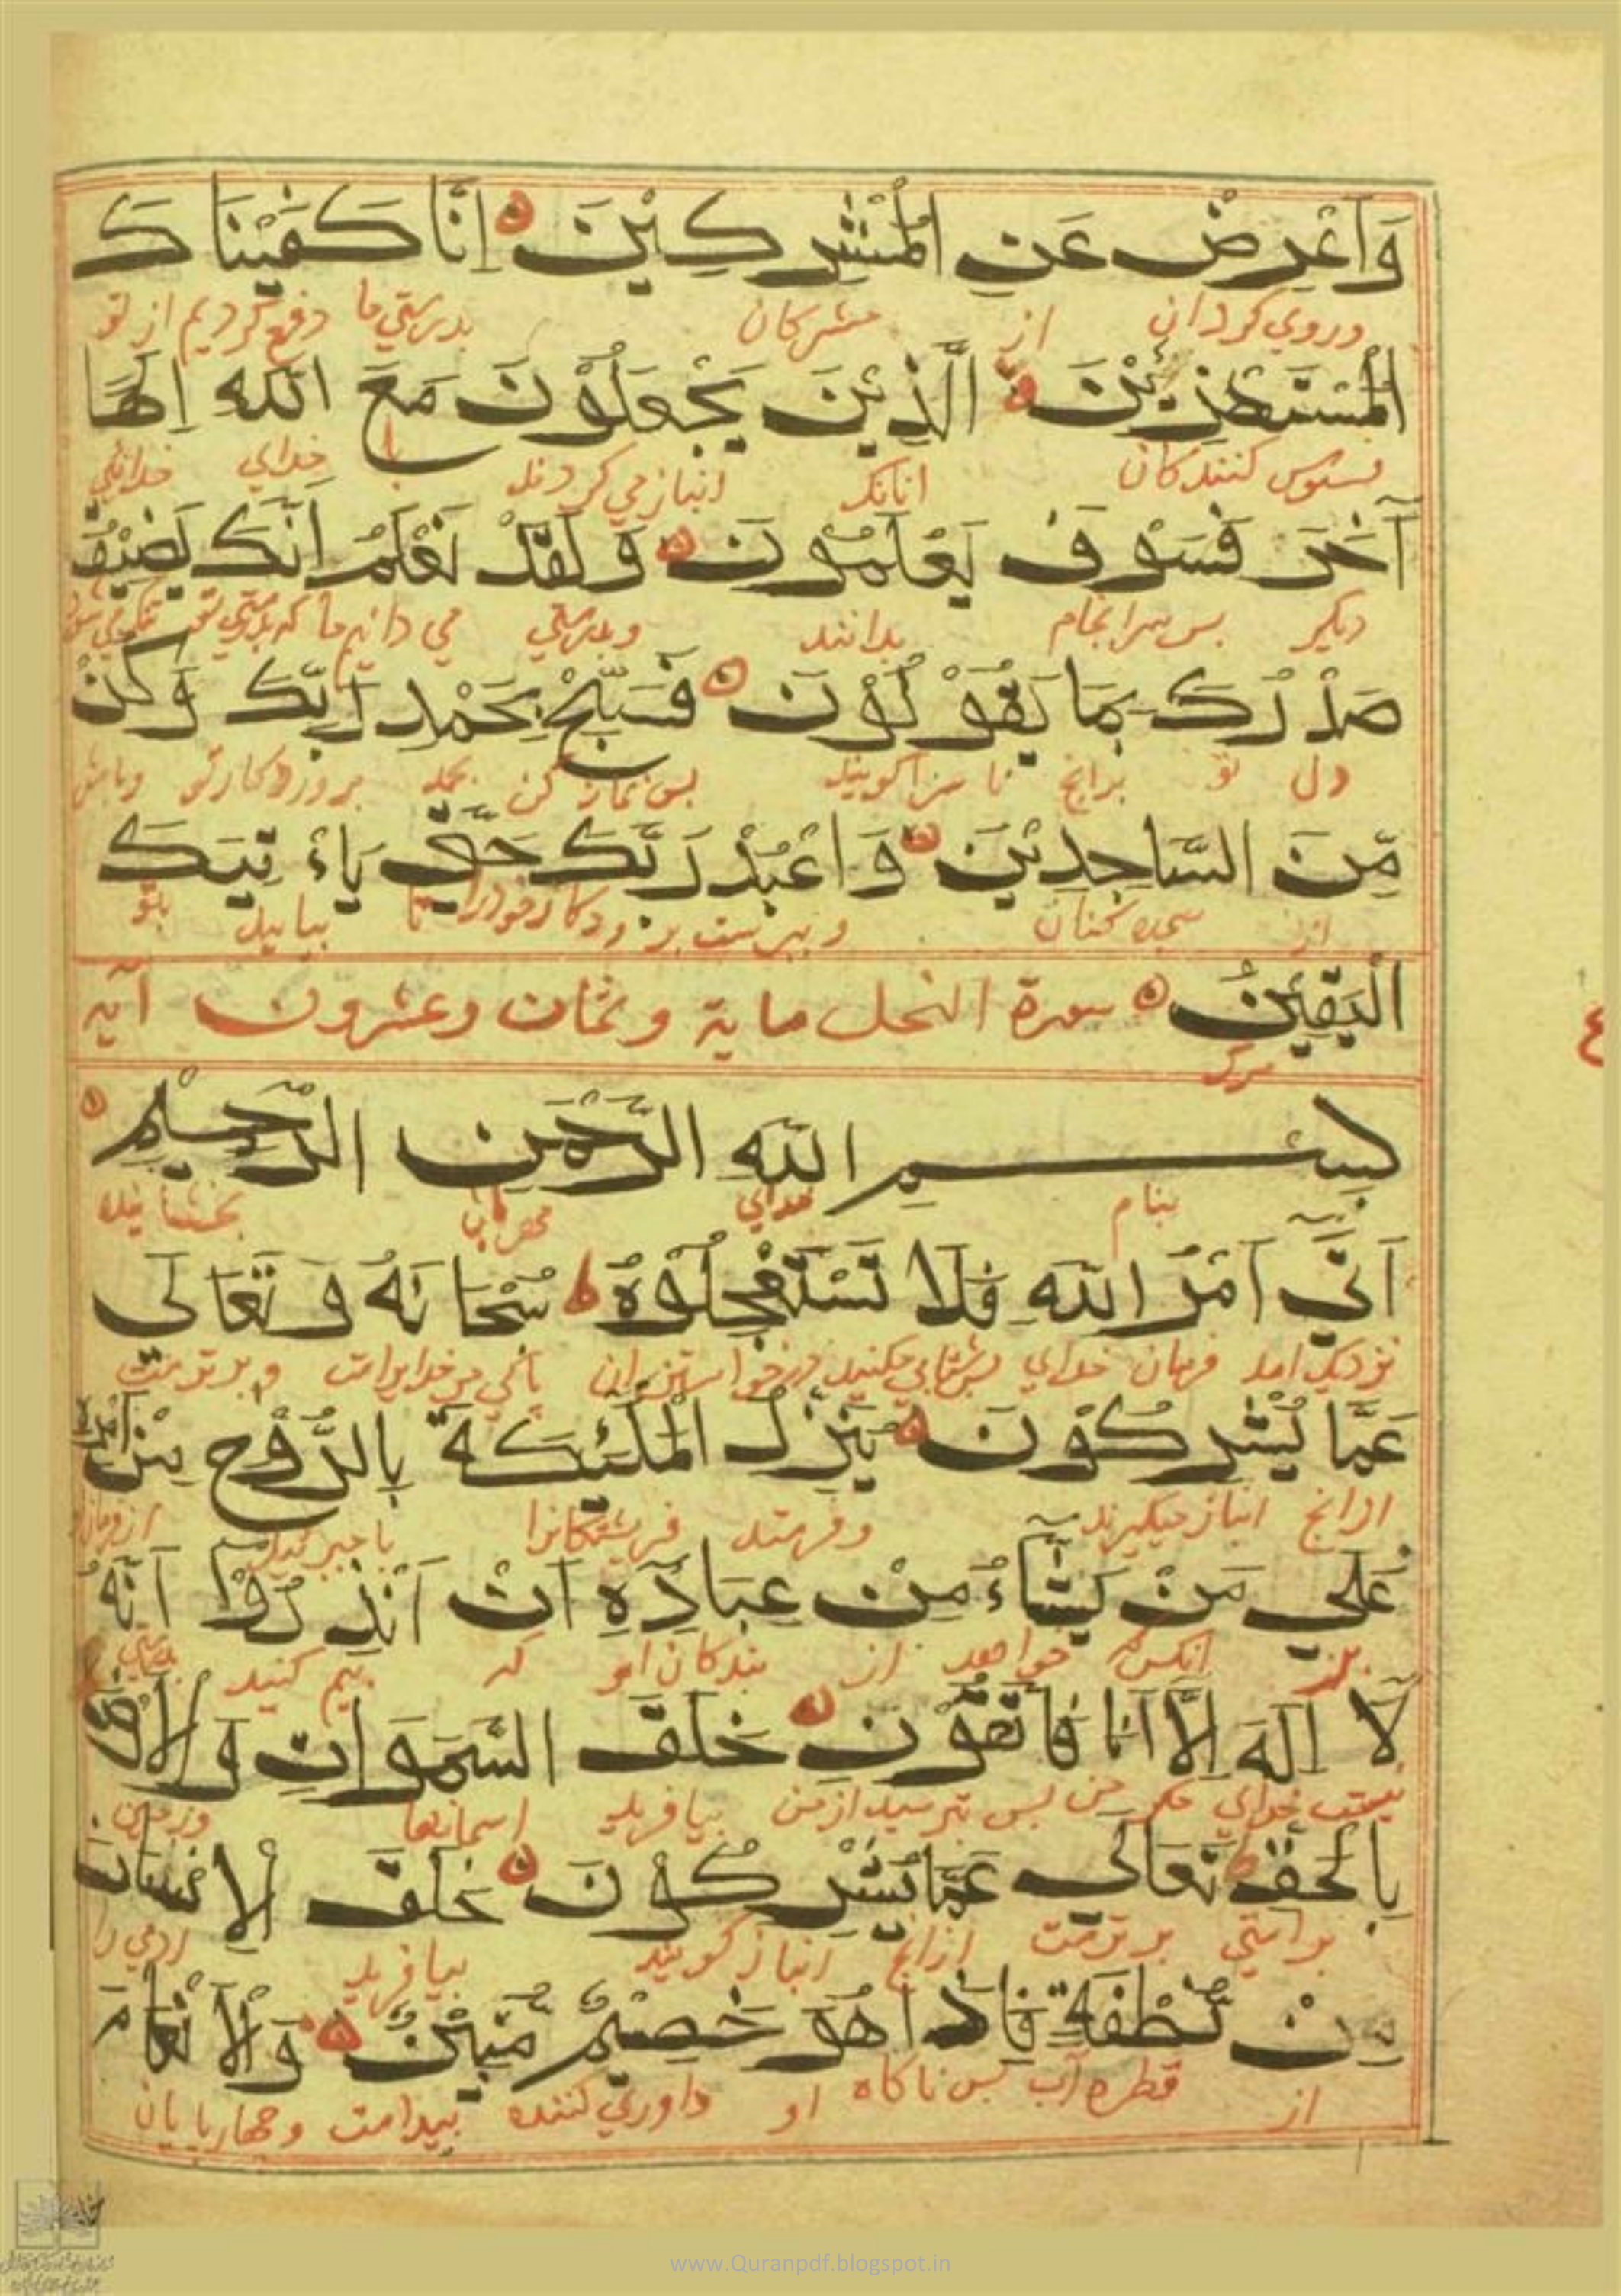 وَاَعْرِضْ عَنِ الْمُشْرِكِيْنَ اِنَّا كَفَيْنَاكَ
وروي كردان از مشركان بدرستي ما دفع كرديم از تو
الْمُسْتَهْزِئِيْنَ الَّذِيْنَ يَجْعَلُوْنَ مَعَ اللهِ اِلٰهًا
فسوس كنندكان انانك انباز مي كردند با خداي خدائي
آخَرَ فَسَوْفَ يَعْلَمُوْنَ وَلَقَدْ نَعْلَمُ اَنَّكَ يَضِيْقُ
ديكر بس سرانجام بدانند وبدرستي مي دانيم ما كه بدرستي تو
صَدْرُكَ بِمَا يَقُوْلُوْنَ فَسَبِّحْ بِحَمْدِ رَبِّكَ وَكُنْ
دل تو برانج نا سزا كويند بس نماز كن بحمد بروردكار تو وباش
مِّنَ السَّاجِدِيْنَ وَاعْبُدْ رَبَّكَ حَتّٰي يَاءْتِيَكَ
از سجده كنان وبپرست پروردكار خود را تا بيايد بتو
الْيَقِيْنُ سورة النحل ماية وثمان وعشرون آية
مرك
بِسْمِ اللهِ الرَّحْمٰنِ الرَّحِيْمِ
بنام خداي مهربان بخشاينده
اَتٰٓي اَمْرُ اللهِ فَلَا تَسْتَعْجِلُوْهُ سُبْحَانَهُ وَتَعَالٰي
نزديك امد فرمان خداي بشتابي مكنيد درخواستن ان پاكي مر خدايراست وبرترست
عَمَّا يُشْرِكُوْنَ يُنَزِّلُ الْمَلٰئِكَةَ بِالرُّوْحِ مِنْ اَمْرِهِ
ازانج انباز ميكيرند وفرستد فريشتكانرا با جبرئيل از فرمان
عَلٰي مَنْ يَّشَآءُ مِنْ عِبَادِهِ اَنْ اَنْذِرُوْا اَنَّهُ
بر انكس كه خواهد از بندكان او كه بيم كنيد بدرستي
لَا اِلٰهَ اِلَّا اَنَا فَاتَّقُوْنِ خَلَقَ السَّمٰوَاتِ وَالْاَرْضَ
نيست خداي مكر من بس بترسيد از من بيافريد اسمانها وزمين
بِالْحَقِّ تَعَالٰي عَمَّا يُشْرِكُوْنَ خَلَقَ الْاِنْسَانَ
براستي برترست ازانج انباز كويند بيافريد ادمي را
مِنْ نُّطْفَةٍ فَاِذَا هُوَ خَصِيْمٌ مُّبِيْنٌ وَالْاَنْعَامَ
از قطره آب بس ناكاه او داوري كننده بيداست وجهارپايان
٤
www.Quranpdf.blogspot.in